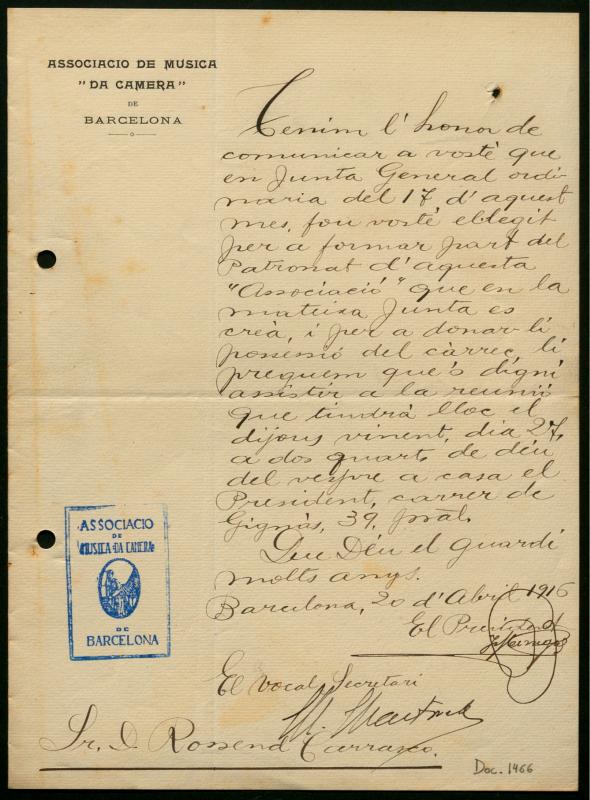 ASSOCIACIO DE MUSICA
"DA CAMERA"
DE
BARCELONA
Tenim l'honor de
comunicar a vostè que
en Junta General ordi-
naria del 17 d'aquest
mes, fou vostè ellegit
per a formar part del
Patronat d'aquesta
"Associació" que en la
mateixa Junta es
creà, i per a donar-li
possessió del càrrec, li
preguem que's digni
assistir a la reunió
que tindrà lloc el
dijous vinent, dia 27,
a dos quarts de déu
del vespre a casa el
President, carrer de
Gignàs, 39, pral.
Que Déu el guardi
molts anys.
Barcelona, 20 d'Abril 1916
El President
El Vocal Secretari
Sr. D. Rossend Carrasco.
ASSOCIACIO
DE
MUSICA·DA CAMERA·
DE
BARCELONA
Doc. 1466